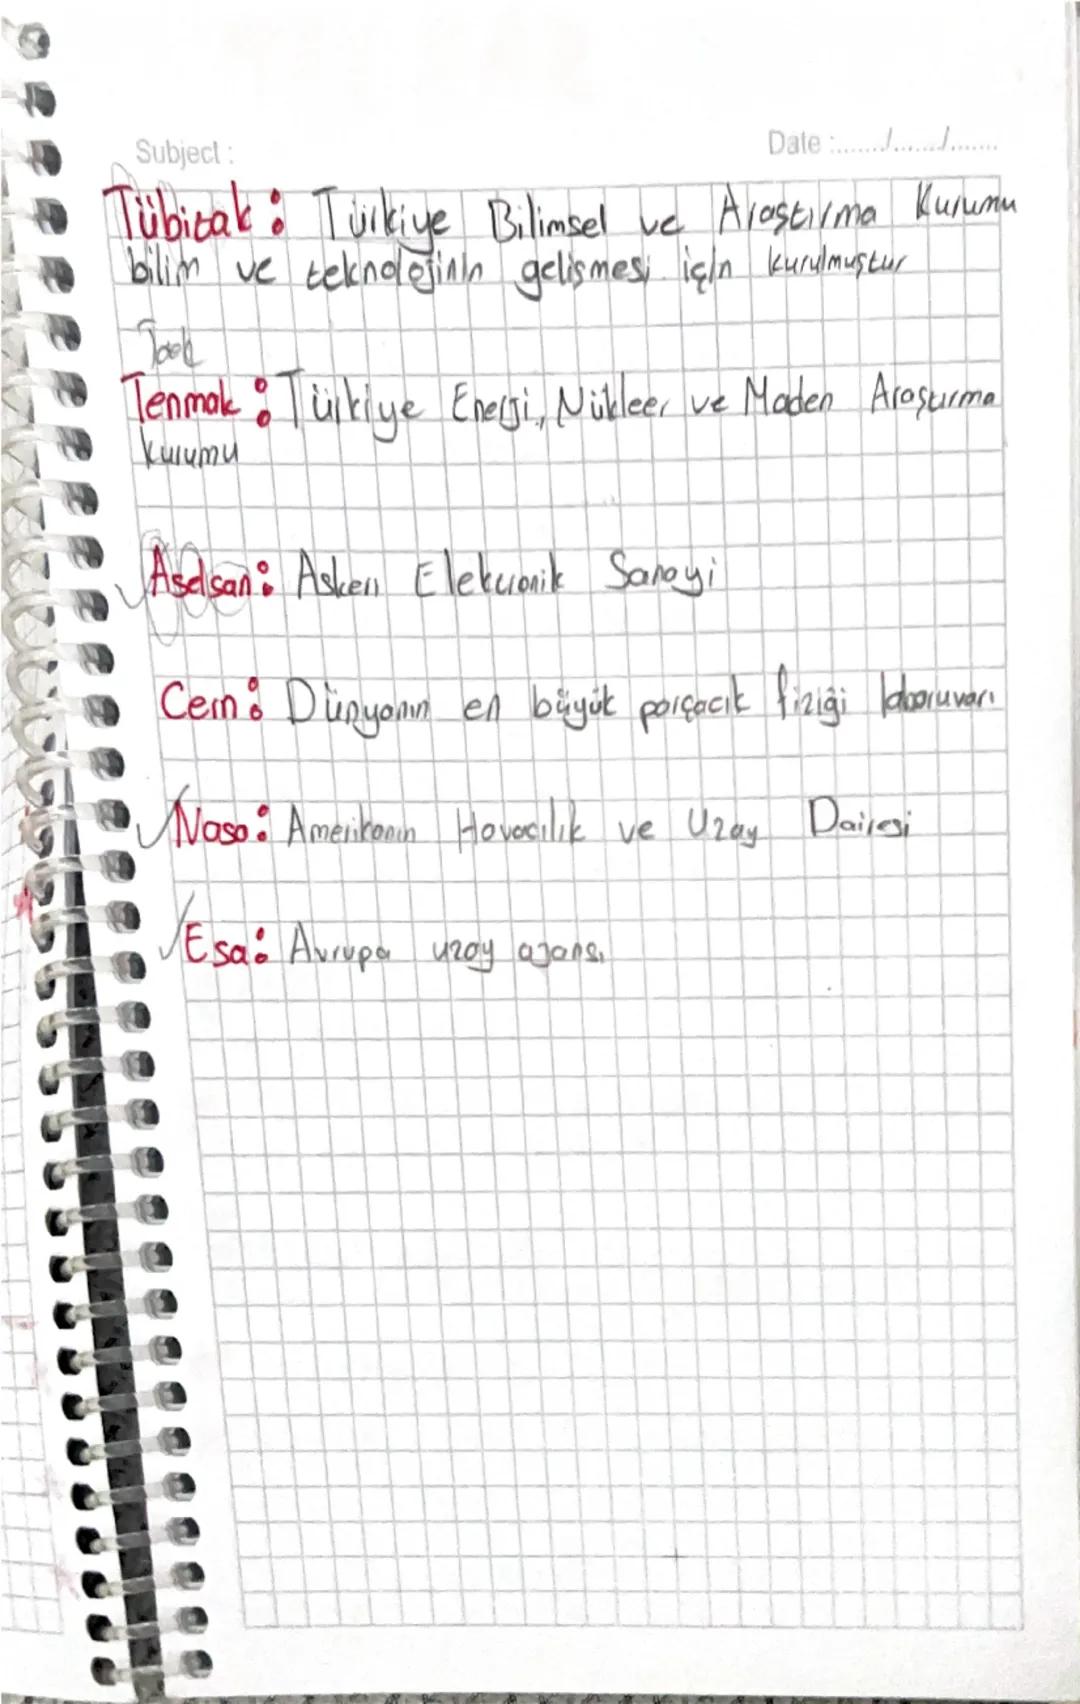 Subject :
Date :......./......./.......
Tübitak : Türkiye Bilimsel ve Araştırma Kurumu
bilim ve teknolojinin gelişmesi için kurulmuştur
Tenmak : Türkiye Enerji, Nükleer ve Maden Araştırma
Kurumu
Aselsan : Askeri Elektronik Sanayi
Cern : Dünyanın en büyük parçacık fiziği laboruvarı
Nasa : Amerikanın Havacılık ve Uzay Dairesi
Esa : Avrupa uzay ajansı